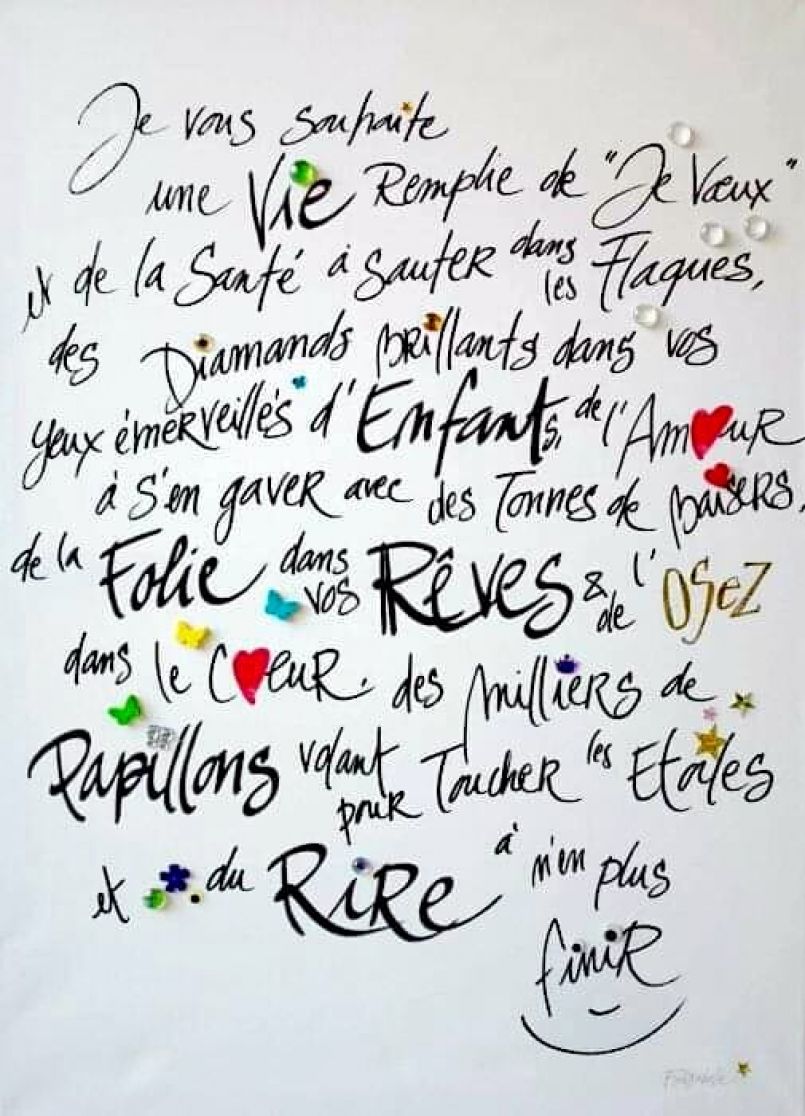 Je vous souhaite
une Vie Remplie de "Je Vœux"
et de la Santé à sauter dans les Flaques,
des Diamands brillants dans vos
yeux émerveillés d'Enfants, de l'Amour
à s'en gaver avec des Tonnes de baisers,
de la Folie dans vos Rêves & de l'OSEZ
dans le Cœur. des milliers de
Papillons volant pour Toucher les Etoiles
et du Rire à n'en plus
finir